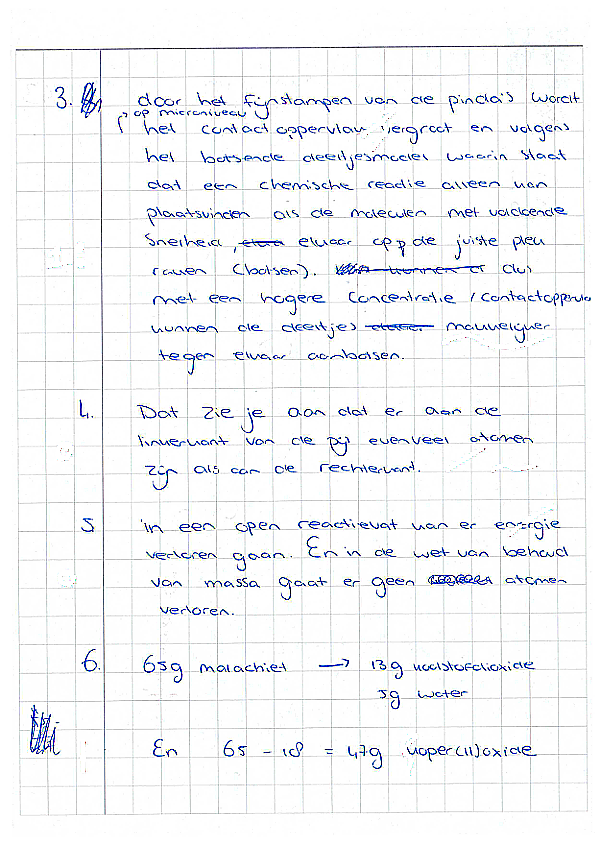 3. door het fijnstampen van de pinda's wordt
op microniveau
het contactoppervlak vergroot en volgens
het botsende deeltjesmodel waarin staat
dat een chemische reactie alleen kan
plaatsvinden als de moleculen met voldoende
snelheid, elkaar op de juiste plek
raken (botsen). dus
met een hogere concentratie / contactoppervla
kunnen de deeltjes makkelijker
tegen elkaar aanbotsen.
4. Dat zie je aan dat er aan de
linkerkant van de pijl evenveel atomen
zijn als aan de rechterkant.
5 in een open reactievat kan er energie
verloren gaan. En in de wet van behoud
van massa gaat er geen atomen
verloren.
6. 65g malachiet → 13g koolstofdioxide
5g water
En 65 - 18 = 47g koper(II)oxide